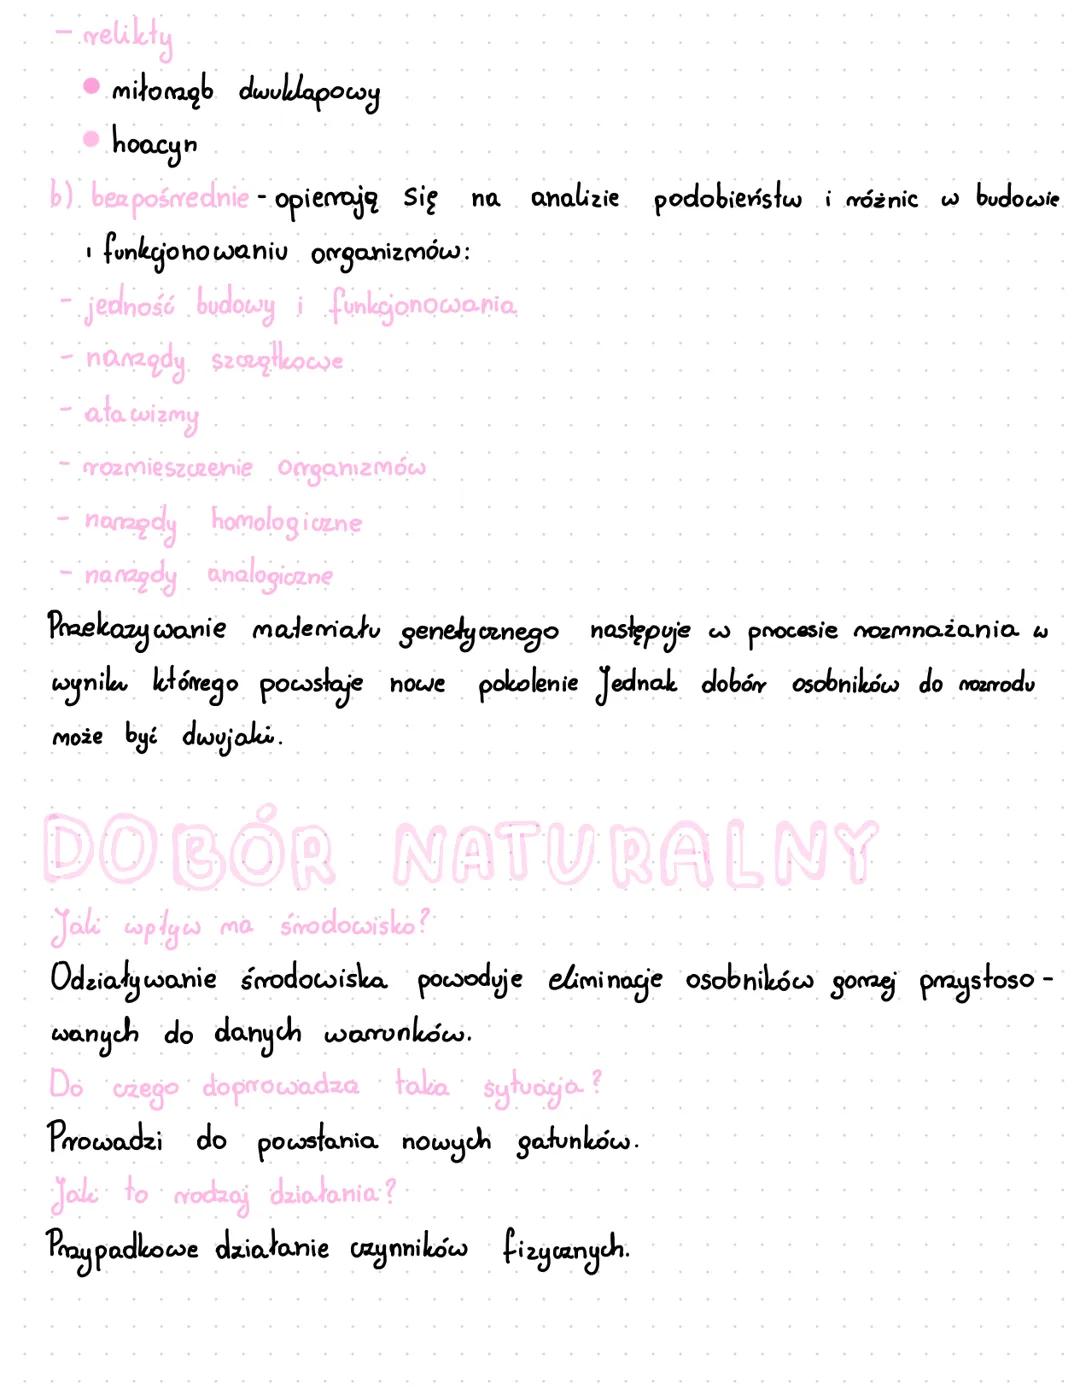 - relikty
• miłorząb dwuklapowy
• hoacyn
b) bezpośrednie - opierają się na analizie podobieństw i różnic w budowie
i funkcjonowaniu organizmów:
- jedność budowy i funkcjonowania
- narządy szczątkowe
- atawizmy
- rozmieszczenie organizmów
- narządy homologiczne
- narządy analogiczne
Przekazywanie materiału genetycznego następuje w procesie rozmnażania w
wyniku którego powstaje nowe pokolenie Jednak dobór osobników do rozrodu
może być dwojaki.
DOBÓR NATURALNY
Jaki wpływ ma środowisko?
Odziaływanie środowiska powoduje eliminacje osobników gorzej przystoso-
wanych do danych warunków.
Do czego doprowadza taka sytuacja?
Prowadzi do powstania nowych gatunków.
Jaki to rodzaj działania?
Przypadkowe działanie czynników fizycznych.